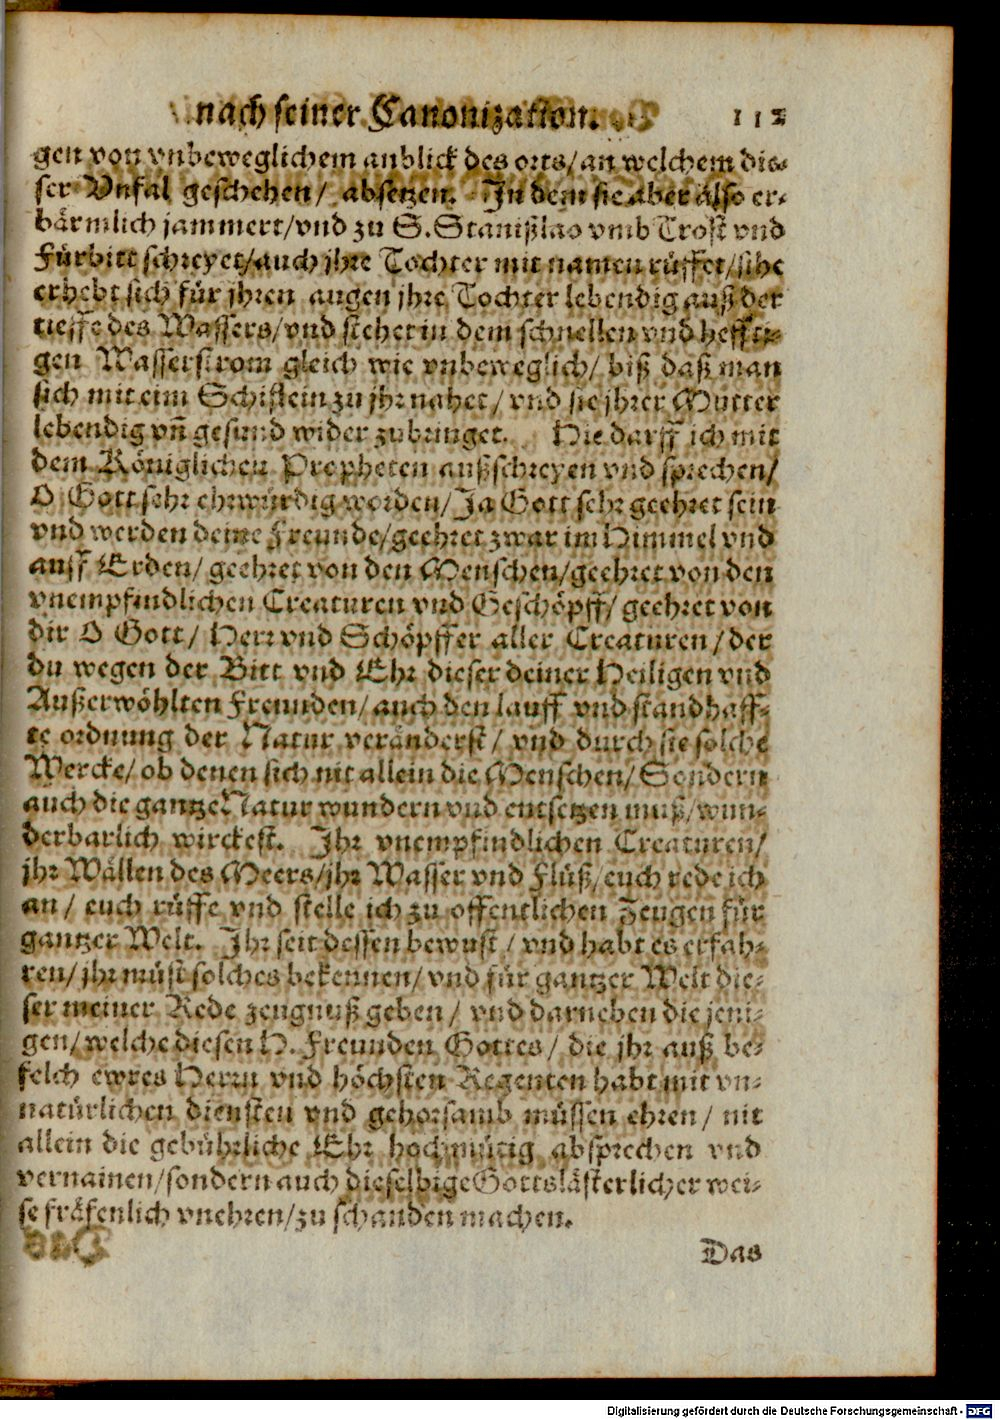 nach seiner Canonization. 112
gen von vnbeweglichem anblick des orts/ an welchem die-
ser Vnfal geschehen/ absetzen. In dem sie aber also er-
bärmlich jammert/ vnd zu S. Stanißlao vmb Trost vnd
Fürbitt schreyet/ auch jhre Tochter mit namen rüffet/ sihe
erhebt sich für jhren augen jhre Tochter lebendig auß der
tieffe des Wassers/ vnd stehet in dem schnellen vnd heffti-
gen Wasserstrom gleich wie vnbeweglich/ biß daß man
sich mit eim Schiflein zu jhr nahet/ vnd sie jhrer Mutter
lebendig vñ gesund wider zubringet. Hie darff ich mit
dem Königlichen Propheten außschreyen vnd sprechen/
O Gott sehr ehrwürdig worden/ Ja Gott sehr geehret sein
vnd werden deine Freunde/ geehret zwar im Himmel vnd
auff Erden/ geehret von den Menschen/ geehret von den
vnempfindlichen Creaturen vnd Geschöpff/ geehret von
dir O Gott/ Herr vnd Schöpffer aller Creaturen/ der
du wegen der Bitt vnd Ehr dieser deiner Heiligen vnd
Außerwöhlten Freunden/ auch den lauff vnd standhaff-
te ordnung der Natur veränderst/ vnd durch sie solche
Wercke/ ob denen sich nit allein die Menschen/ Sondern
auch die gantze Natur wundern vnd entsetzen muß/ wun-
derbarlich wirckest. Ihr vnempfindlichen Creaturen/
jhr Wällen des Meers/ jhr Wasser vnd Flüß/ euch rede ich
an/ euch rüffe vnd stelle ich zu offentlichen Zeugen für
gantzer Welt. Ihr seit dessen bewust/ vnd habt es erfah-
ren/ jhr müst solches bekennen/ vnd für gantzer Welt die-
ser meiner Rede zeugnuß geben/ vnd darneben die jeni-
gen/ welche diesen H. Freunden Gottes/ die jhr auß be-
felch ewres Herrn vnd höchsten Regenten habt mit vn-
natürlichen diensten vnd gehorsamb müssen ehren/ nit
allein die gebührliche Ehr hochmütig absprechen vnd
vernainen/ sondern auch dieselbige Gottslästerlicher wei-
se fräfenlich vnehren/ zu schanden machen.
Das
Digitalisierung gefördert durch die Deutsche Forschungsgemeinschaft - DFG